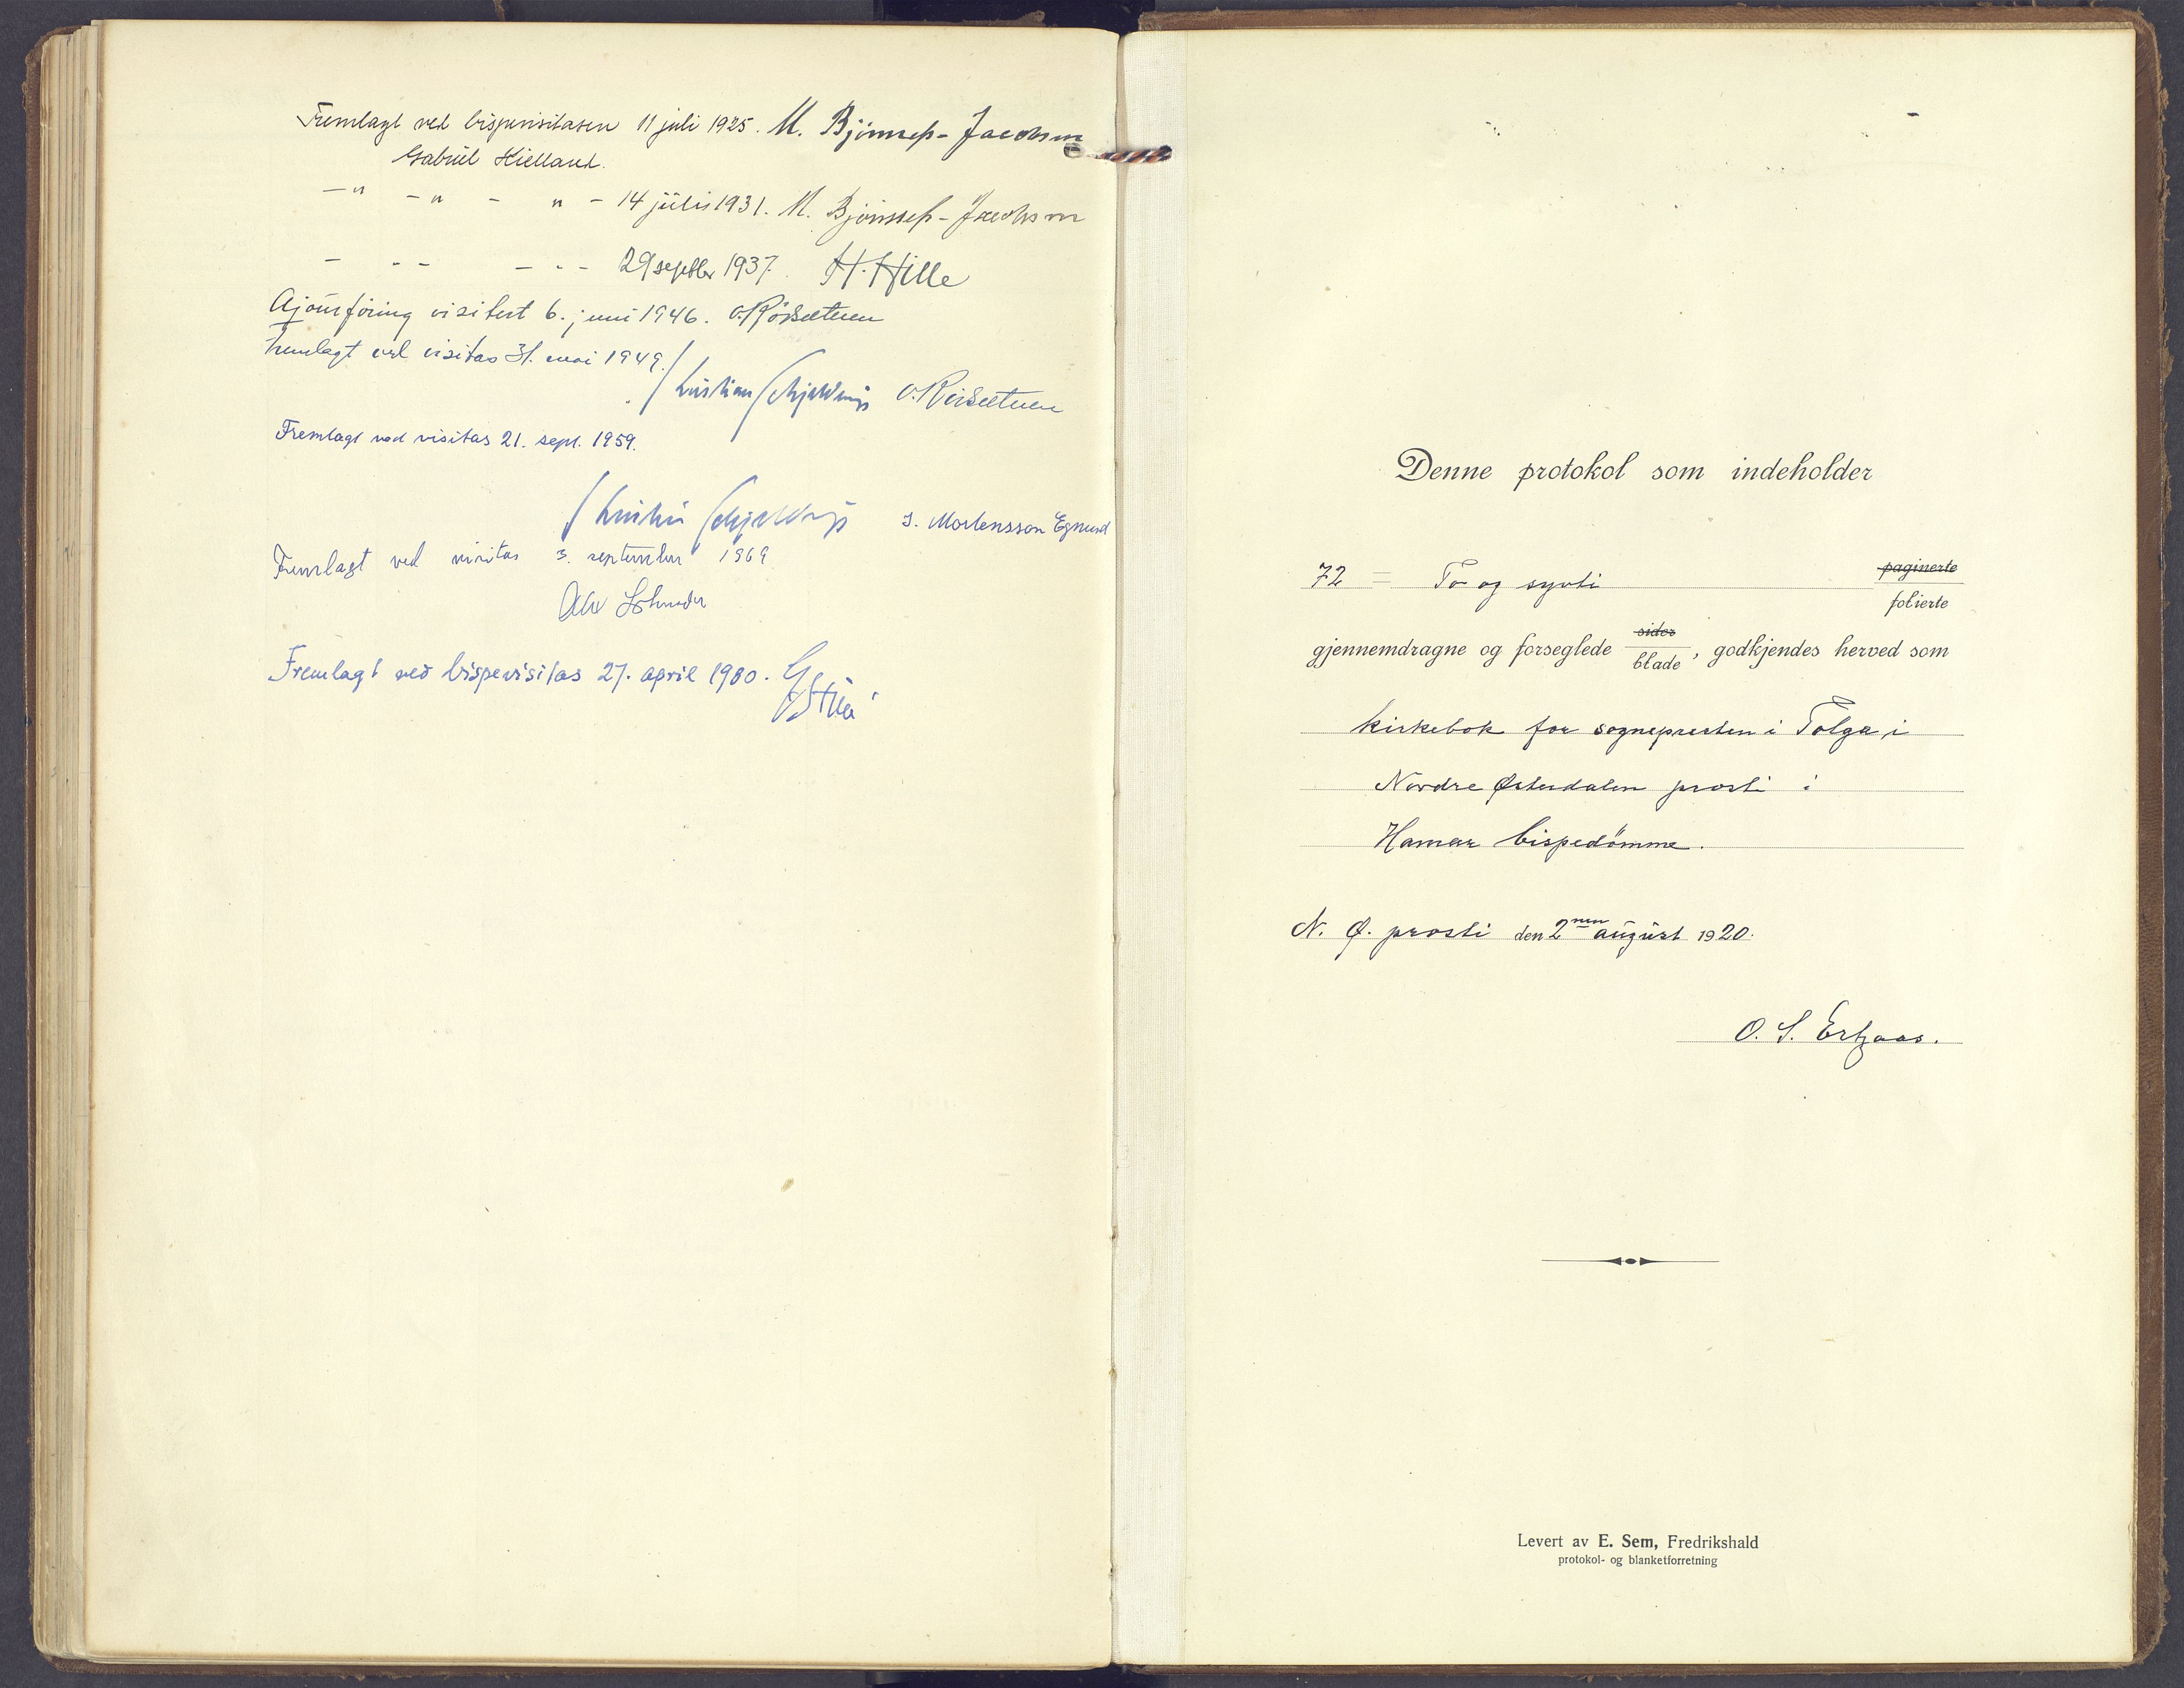 Fremlagt ved bispevisitasen 11 juli 1925. M. Bjønness-Jacobsen
Gabriel Kielland.
—"  – "  –  "  – 14 juli 1931. M. Bjønness-Jacobsen
–  - -  – - - 29 septbr 1937. H. Hille
Ajourføring visitert 6. juni 1946. O. Røisetuen
Fremlagt ved visitas 31. mai 1949.
Kristian Schjelderup O. Røisetuen
Fremlagt ved visitas 21. sept. 1959.
Kristian Schjelderup I. Mortensson Egnund
Fremlagt ved visitas 3. september 1969
Alex Johnson
Fremlagt ved bispevisitas 27. april 1980. G
Denne protokol som indeholder
72 = To og sytti paginerte
folierte
gjennemdragne og forseglede sider
blade, godkjendes herved som
kirkebok for sognepresten i Tolga i
Nordre Østerdalen prosti i
Hamar bispedömme.
N. Ø. prosti den 2nen august 1920.
O. S.
Levert av E. Sem, Fredrikshald
protokol- og blanketforretning